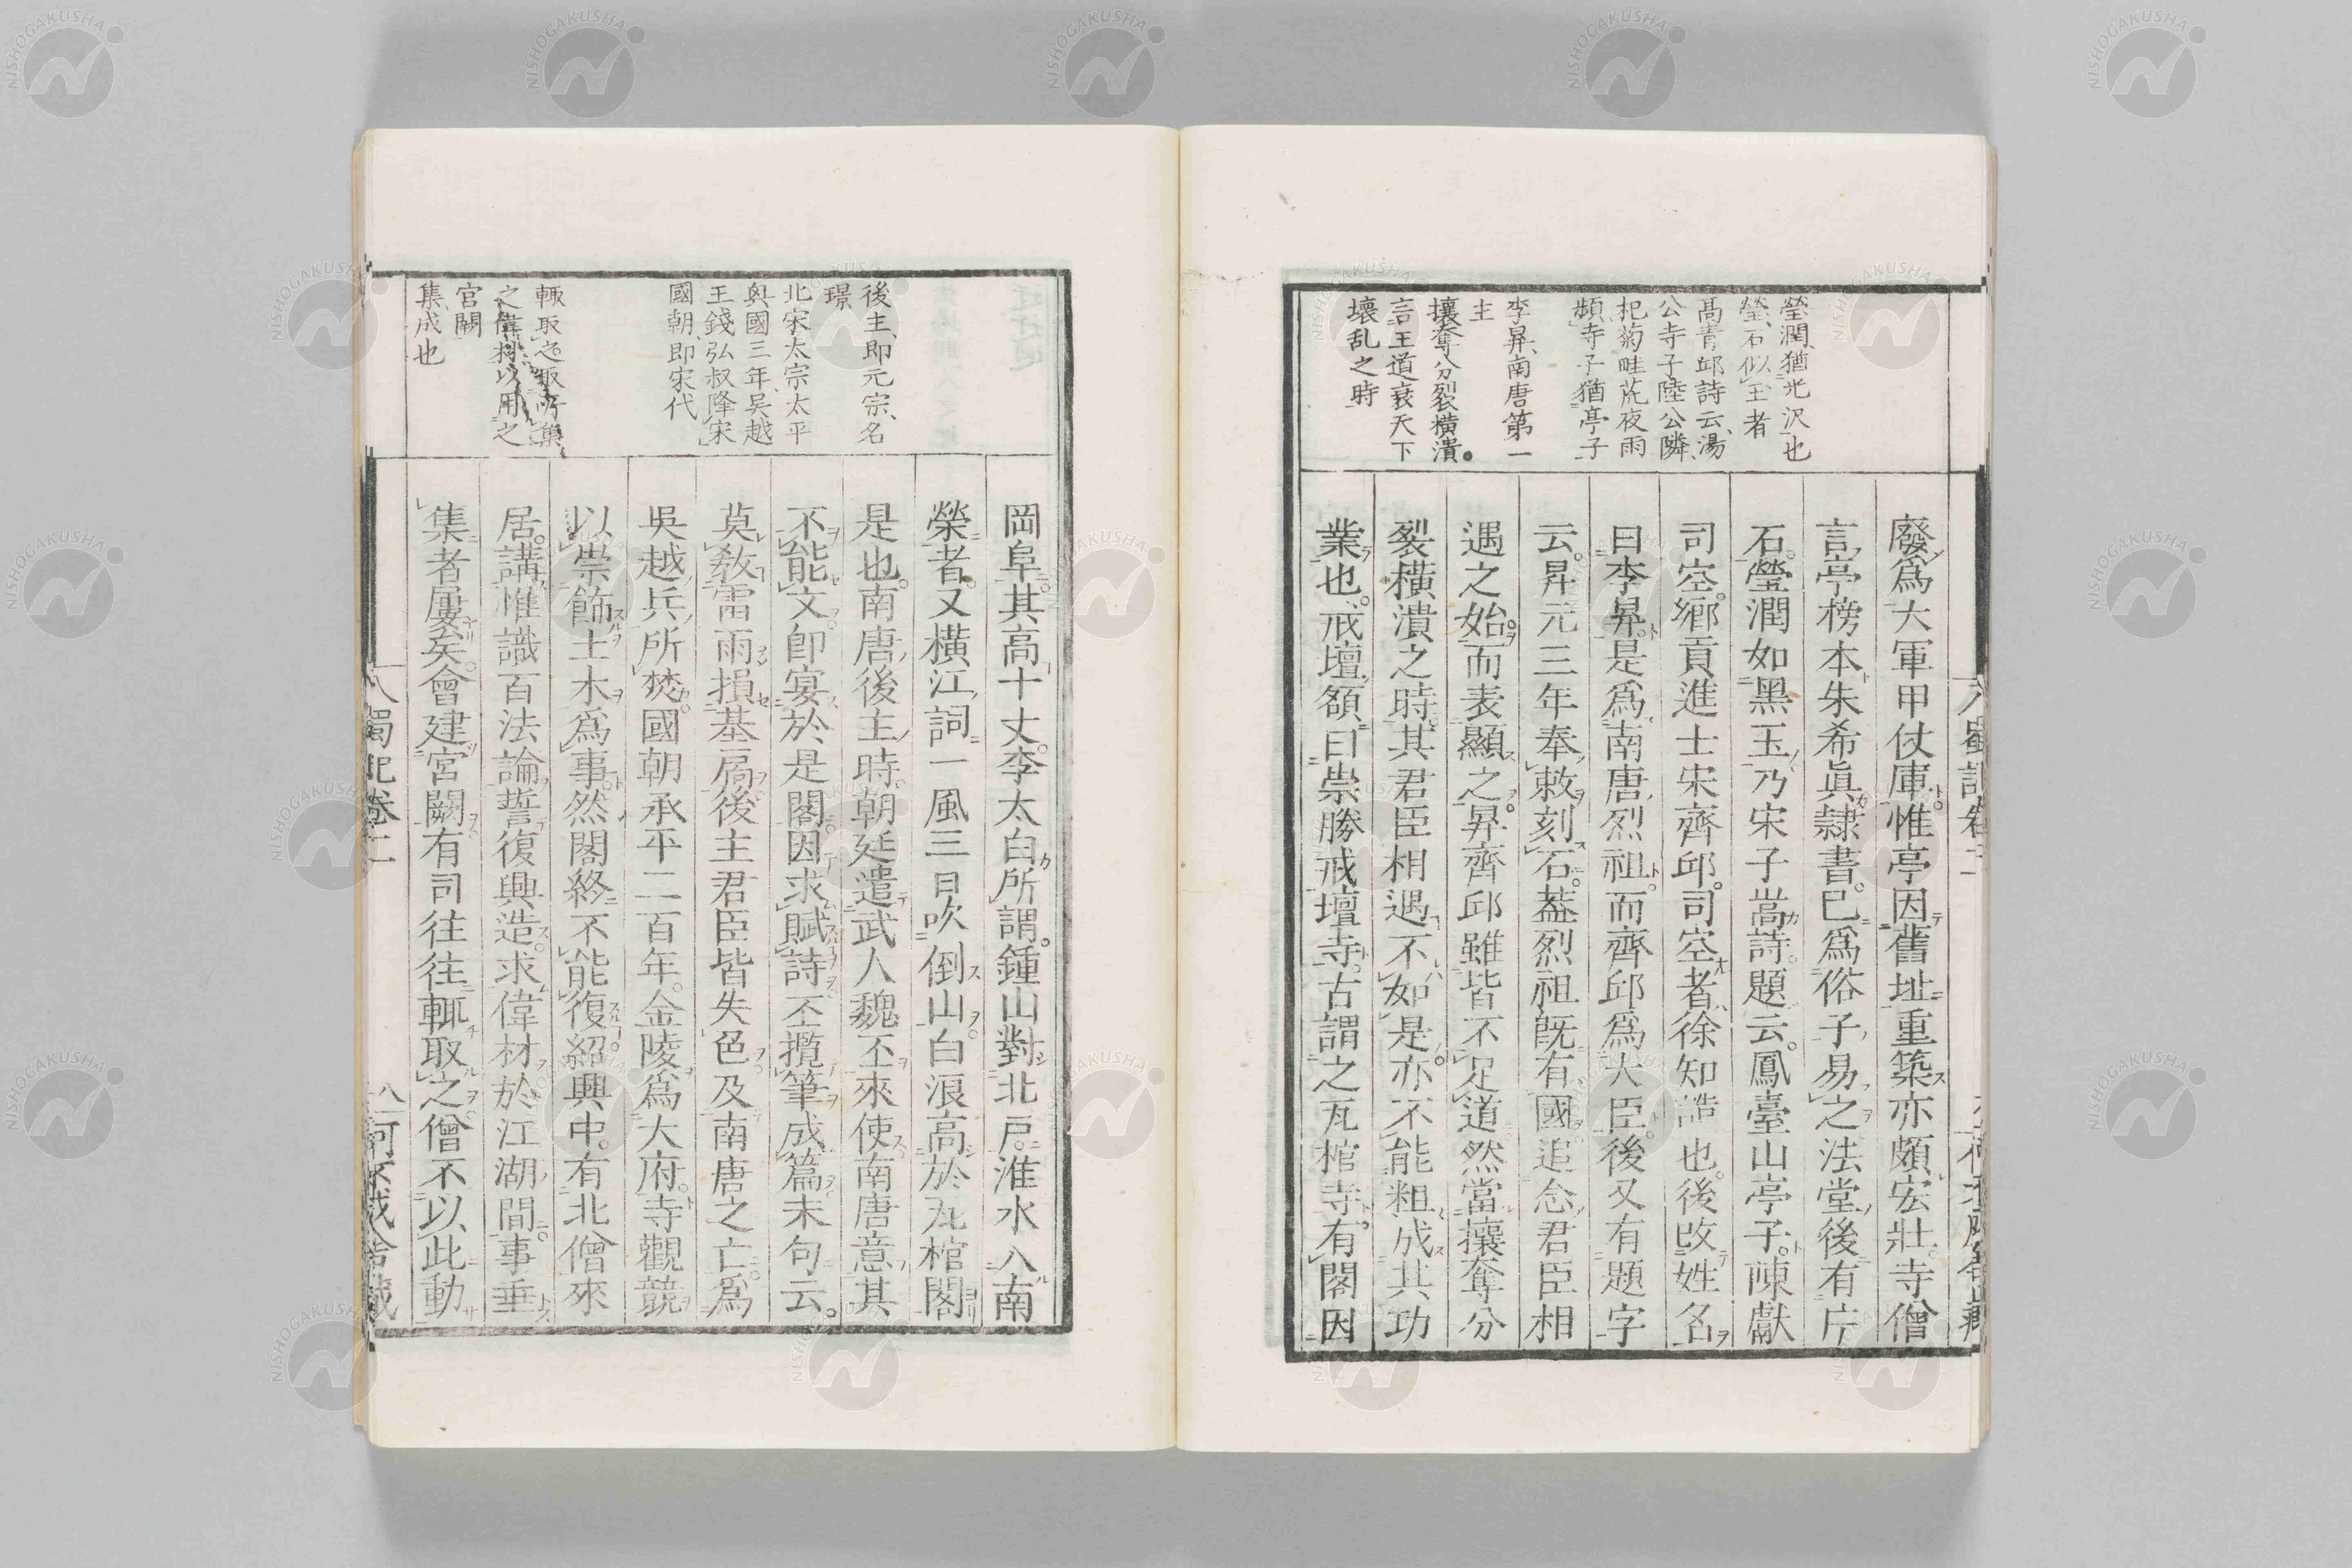 瑩潤、猶光沢也
瑩、石似玉者
高青邱詩云、湯
公寺子陸公隣、
杞菊畦荒夜雨
頻、寺子猶亭子
李昇、南唐第一
主
攘奪分裂橫潰。
言王道衰天下
壞乱之時
廢爲大軍甲仗庫。惟亭因舊址重築亦頗宏壯。寺僧
言亭榜本朱希眞隷書。已爲俗子易之法堂後有片
石。瑩潤如黑玉乃宋子嵩詩。題云。鳳臺山亭子。陳獻
司空。鄉貢進士宋齊邱。司空者、徐知誥也。後改姓名
曰李昇。是爲南唐烈祖。而齊邱爲大臣。後又有題字
云。昇元三年奉敕刻石。蓋烈祖既有國追念君臣相
遇之始。而表顯之。昇齊邱雖皆不足道然當攘奪分
裂橫潰之時。其君臣相遇不如是。亦不能粗成其功
業也。戒壇額曰崇勝戒壇寺。古謂之瓦棺寺。有閣因
後主、即元宗、名
璟
北宋太宗太平
興國三年、吳越
王錢弘叔降宋
國朝、即宋代
輙取之。取所集
之偉材以用之
宮闕
集、成也
岡阜。其高十丈。李太白所謂。鍾山對北戶。淮水入南
榮者。又橫江詞一風三日吹倒山。白浪高於瓦棺閣
是也。南唐後主時。朝廷遣武人魏丕來使。南唐意其
不能文卽宴於是閣。因求賦詩。丕攬筆成篇。末句云。
莫敎雷雨損基扃。後主君臣皆失色。及南唐之亡。爲
吳越兵所焚。國朝承平二百年。金陵爲大府。寺觀競
以崇飾土木爲事。然閣終不能復。紹興中。有北僧來
居。講惟識百法論。誓復興造。求偉材於江湖間。事垂
集者屢矣。會建宮闕。有司往往輙取之。僧不以此動